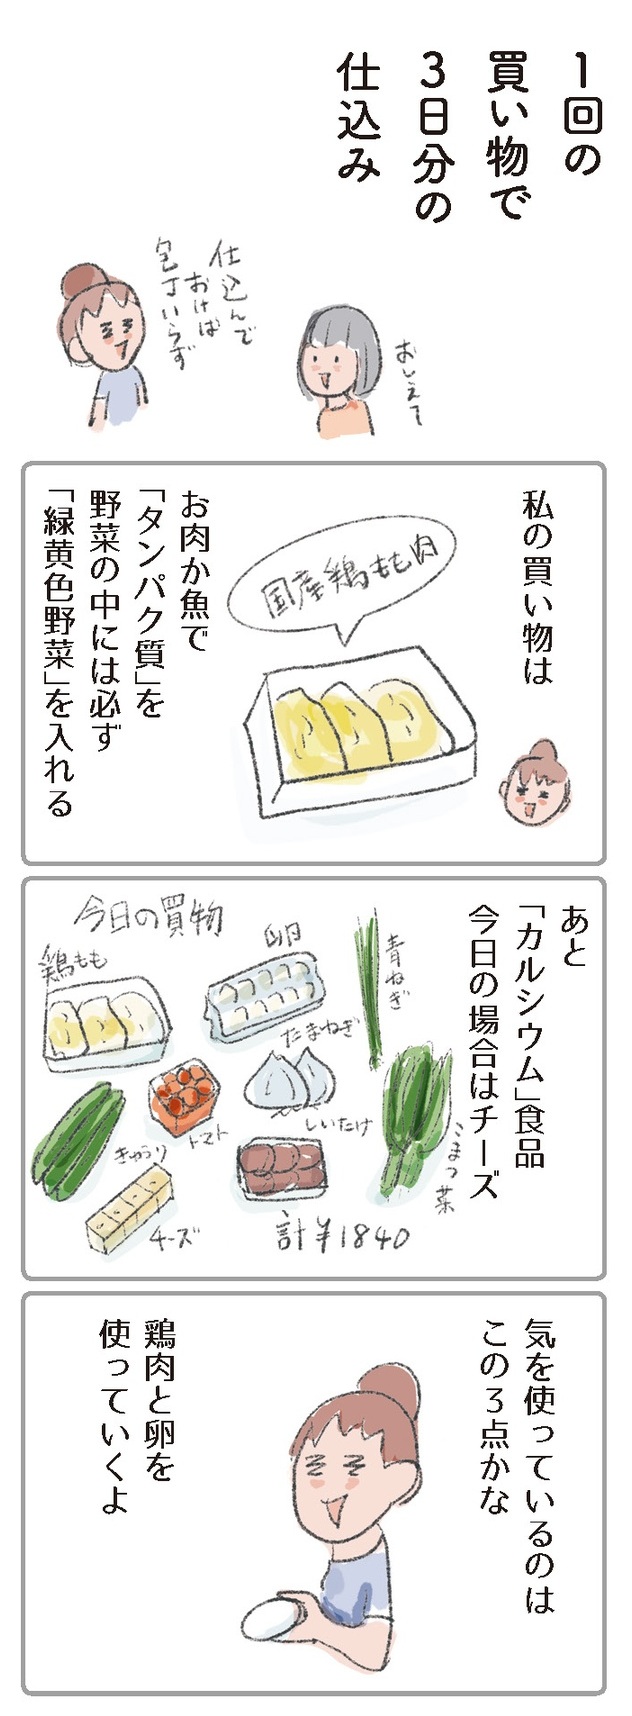 1回の
買い物で
3日分の
仕込み
おしえて
仕込んで
おけば
包丁いらず
私の買い物は
国産鶏もも肉
お肉か魚で
「タンパク質」を
野菜の中には必ず
「緑黄色野菜」を入れる
あと
「カルシウム」食品
今日の場合はチーズ
今日の買物
鶏もも
卵
青ねぎ
たまねぎ
トマト
しいたけ
こまつ菜
きゅうり
チーズ
計¥1840
気を使っているのは
この3点かな
鶏肉と卵を
使っていくよ